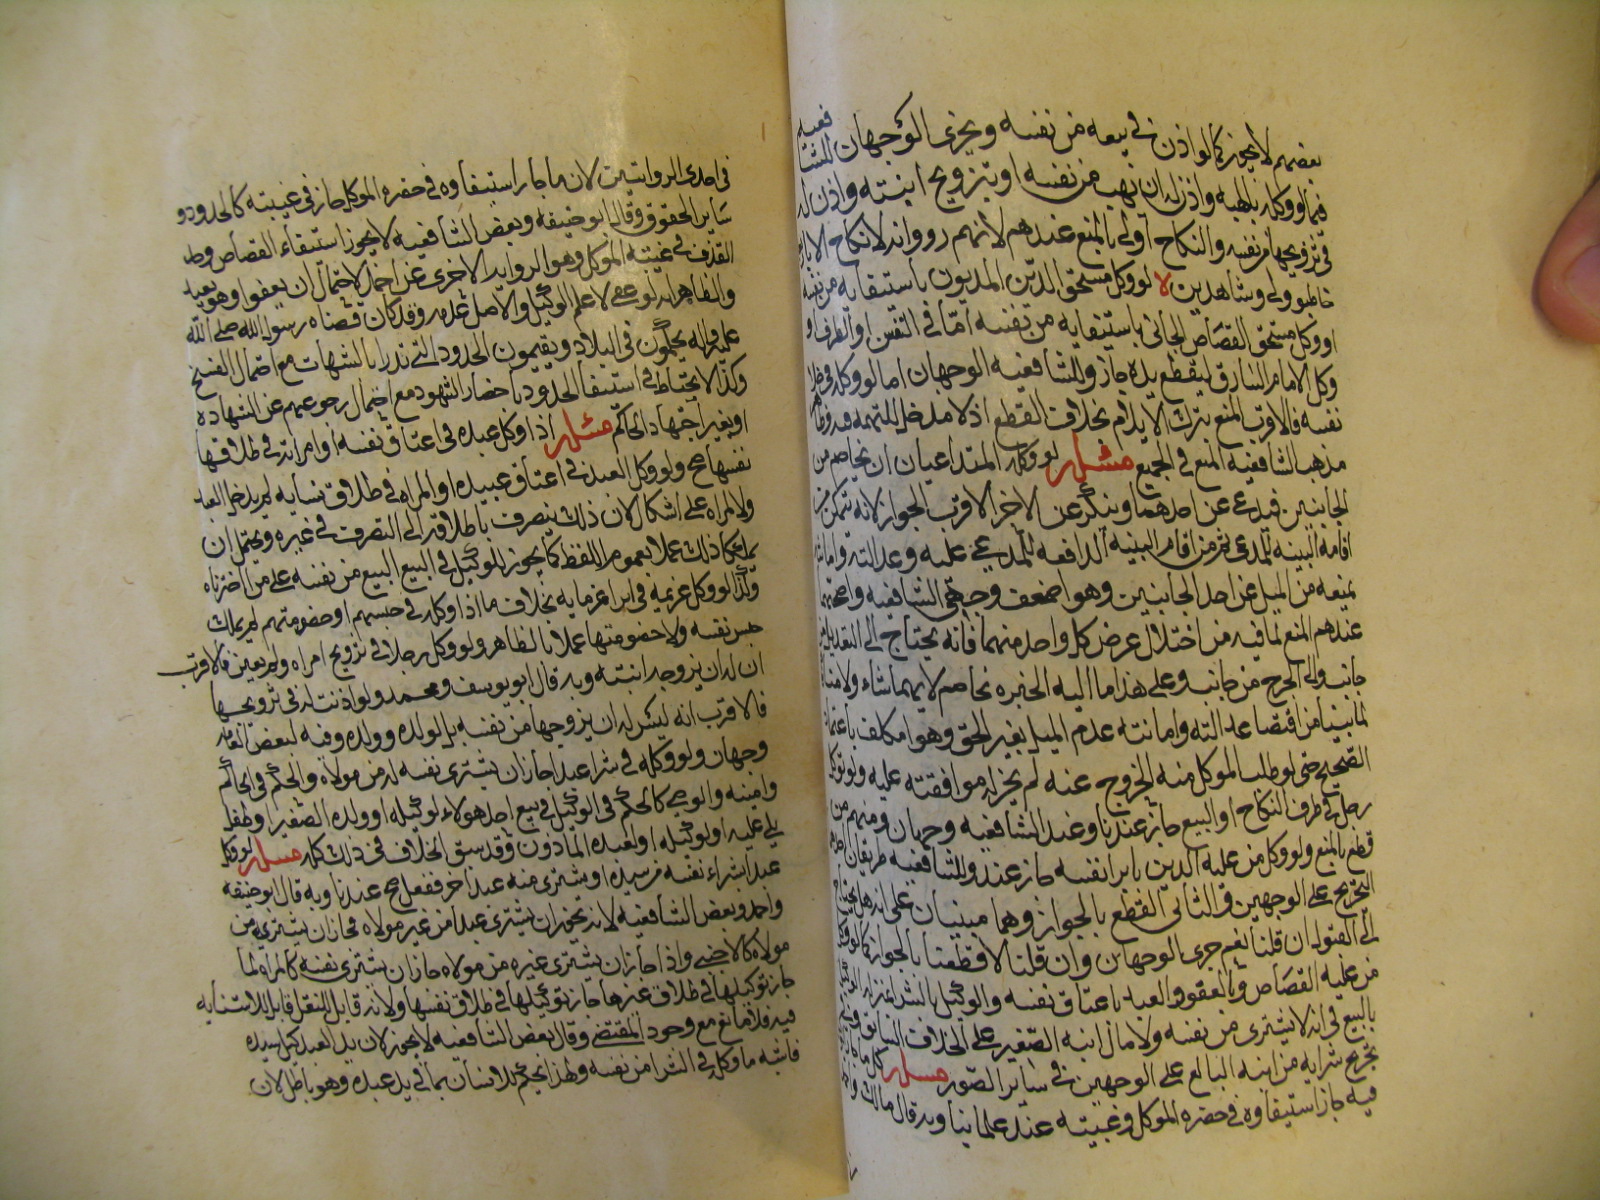 بعضهم لا يجوز كما لو اذن في بيعه من نفسه ويجزى الوجهان للشافعيه
فيما لو وكله بالهبه واذن له ان يهب من نفسه او بتزويج ابنته واذن له
في تزويجها من نفسه والنكاح اولى بالمنع عندهم لانهم رووا انه لا نكاح الا باربعة
خاطب وولى وشاهدين لا لو وكل مستحق الدين المديون باستيفايه من نفسه
او وكل مستحق القصاص الجانى باستيفايه من نفسه امّا في النفس او الطرف او
وكل الامام السارق ليقطع يده جاز وللشافعيه الوجهان اما لو وكله في جلد
نفسه فالاقرب المنع بترك الايلام بخلاف القطع اذ لا مدخل للتهمه فيه وظاهر
مذهب الشافعيه المنع في الجميع مسئله لو وكل المتداعيان ان يخاصم من
الجانبين فيدعى عن احدهما وينكر عن الاخر الاقرب الجواز لانه يتمكن من
اقامه البينه للمدعى ثم من اقام البينه الدافعه للمدعى عليه وعدالته وامانته
يمنعه من الميل عن احد الجانبين وهو اضعف وجهى الشافعيه واصحهما
عندهم المنع لما فيه من اختلال غرض كل واحد منهما فانه يحتاج الى التعديل من
جانب والى الجرح من جانب وعلى هذا ما اليه الخيره يخاصم لايهما شاء ولا منافاة
لما بينا من اقتضا عدالته وامانته عدم الميل بغير الحق وهو امكلف باعتماد
الصحيح حتى لو طلب الموكل منه الخروج عنه لم يجز له موافقته عليه ولو توكل
رجل في طرف النكاح او البيع جاز عندنا وعند الشافعيه وجهان ومنهم من
قطع بالمنع ولو وكل من عليه الدين بابرا نفسه جاز عندنا وللشافعيه طريقان احدهما
التخريج على الوجهين والثانى القطع بالجواز وهما مبنيان على انه هل يحتاج
الى القبول ان قلنا نعم جرى الوجهان وان قلنا لا قطعنا بالجواز كما لو وكل
من عليه القصاص بالعفو والعبد باعتاق نفسه والوكيل بالشرا بمنزلة الوكيل
بالبيع في انه لا يشترى من نفسه ولا مال ابنه الصغير على الخلاف السابق
يخرج شرايه من ابنه البالغ على الوجهين في ساير الصور مسئله كل ما جاز
فيه جاز استيفاوه في حضره الموكل وغيبته عند علماينا وبه قال مالك واحمد
في احدى الروايتين لان ما جاز استيفاوه في حضره الموكل جاز في غيبته كالحدود و
ساير الحقوق وقال ابو حنيفه وبعض الشافعيه لا يجوز استيفاء القصاص وحد
القذف في غيبته الموكل وهو الروايه الاخرى عن احمد لاحتمال ان يعفو او هو بعيد
والظاهر انه لو عفى لا علم الوكيل والاصل عدمه وقد كان قضاه رسول الله صلى الله
عليه واله يحكمون في البلاد ويقيمون الحدود التى تدرا بالشبهات مع احتمال النسخ
وكذا لا يحتاط في استيفا الحدود باحضار الشهود مع احتمال رجوعهم عن الشهاده
او بغير اجتهاد الحاكم مسئله اذا وكل عبده في اعتاق نفسه او امراته في طلاقها
نفسها صح ولو وكل العبد في اعتاق عبيده او المراه في طلاق نسايه لم يدخل العبد
ولا المراه على اشكال لان ذلك ينصرف باطلاقه الى التصرف في غيره ويحتمل ان
يملكا ذلك عملا بعموم اللفظ كما يجوز للوكيل في البيع البيع من نفسه على ما اخترناه
وكذا لو وكل غريمه في ابرا غرمايه بخلاف ما اذا وكله في حبسهم او خصومتهم لم يملك
حبس نفسه ولا خصومتها عملا بالظاهر ولو وكل رجلا في تزويج امراه ولم يعين فالاقرب
ان له ان يزوجه ابنته وبه قال ابو يوسف ومحمد ولو اذنت له في تزويجها
فالاقرب انه ليس له ان يزوجها من نفسه بل لولده وولده وفيه لبعض العامه
وجهان ولو وكله في شرا عبد اجاز ان يشترى نفسه له من مولاه والحكم في الحاكم
وامينه والوصى كالحكم في الوكيل في بيع احد هولاء لوكيله او ولده الصغير او طفل
يلى عليه او لوكيله او لعبده الماذون وقد سبق الخلاف في ذلك كله مسئله لو وكل
عبدا بشراء نفسه من سيده او يشترى منه عبدا اخر ففعل صح عندنا وبه قال ابو حنيفه
واحمد وبعض الشافعيه لانه يجوز ان يشترى عبدا من غير مولاه فجاز ان يشترى من
مولاه كالاجنبى واذا جاز ان يشترى غيره من مولاه جاز ان يشترى نفسه كالمراه لما
جاز توكيلها في طلاق غيرها جاز توكيلها في طلاق نفسها ولانه قابل النقل قابل للاستنابه
فيه فلا مانع مع وجود المقتضى وقال بعض الشافعيه لا يجوز لان يد العبد كيد سيده
فاشبه ما وكله في الشرا من نفسه ولهذا يحكم للانسان بما في يد عبده وهو باطل لان